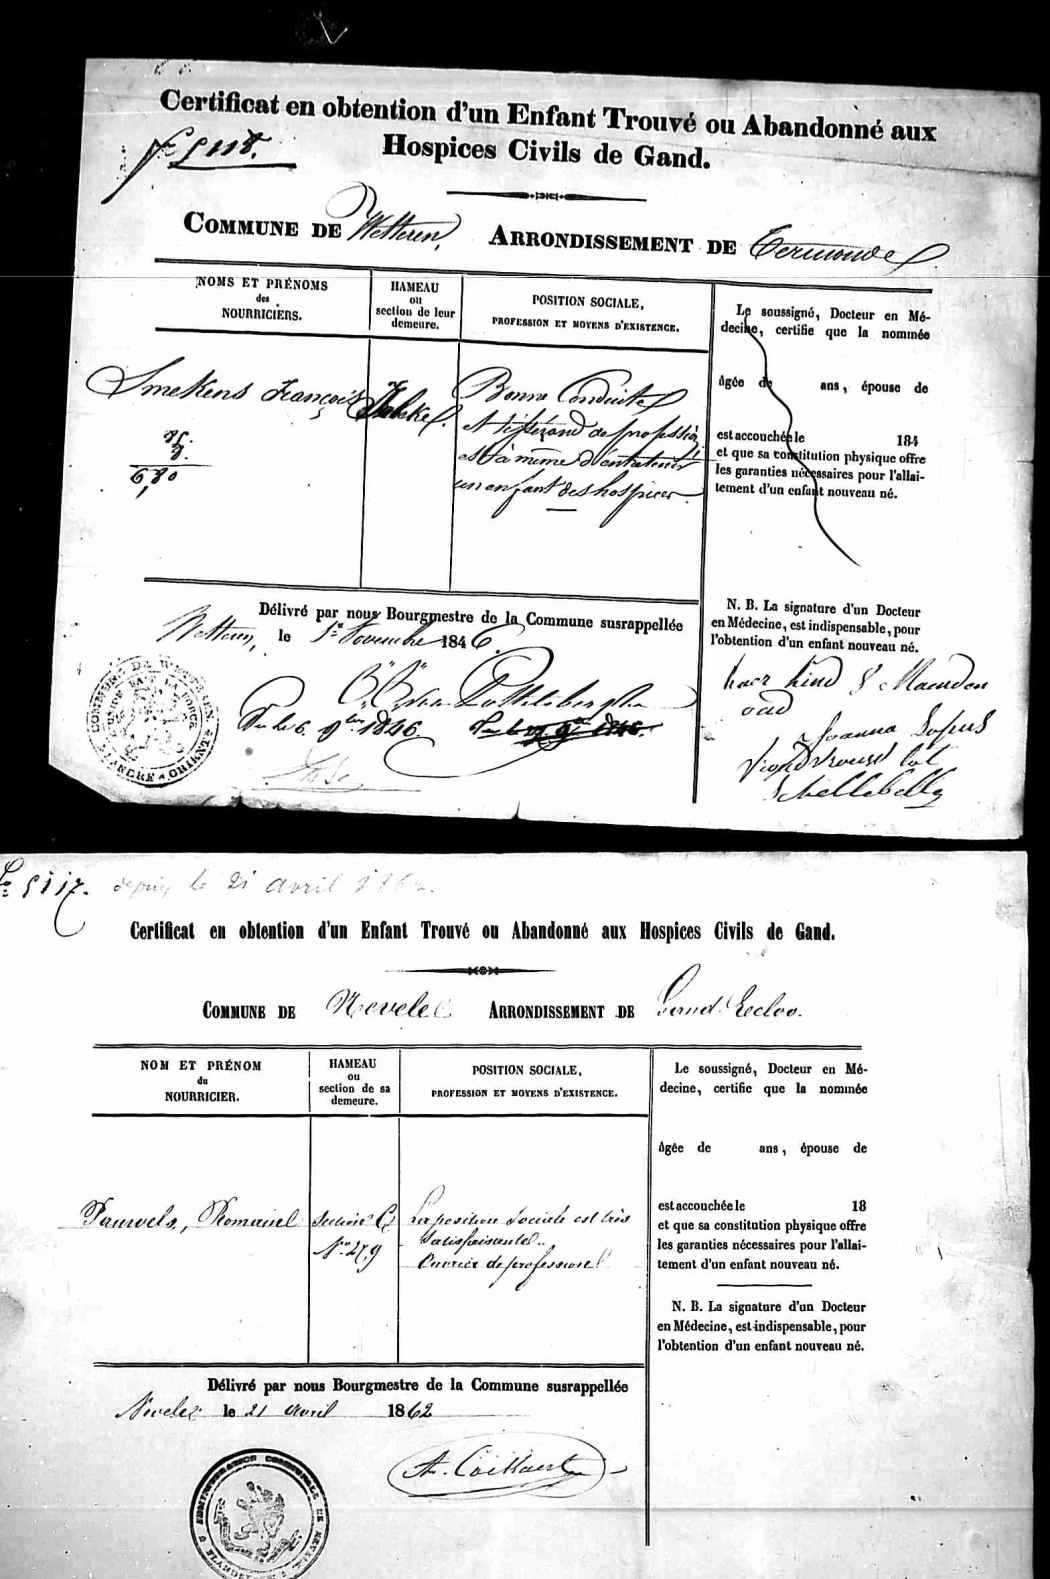 Certificat en obtention d'un Enfant Trouvé ou Abandonné aux
Hospices Civils de Gand.
COMMUNE DE Wetteren, ARRONDISSEMENT DE Termonde
NOMS ET PRÉNOMS
des
NOURRICIERS.
HAMEAU
ou
section de leur
demeure.
POSITION SOCIALE,
PROFESSION ET MOYENS D'EXISTENCE.
Smekens François
6,80
Bonne Conduite
et tisserand de profession
est à même d'entretenir
un enfant des hospices.
Le soussigné, Docteur en Mé-
decine, certifie que la nommée
âgée de ans, épouse de
est accouchée le 184
et que sa constitution physique offre
les garanties nécessaires pour l'allai-
tement d'un enfant nouveau né.
N. B. La signature d'un Docteur
en Médecine, est indispensable, pour
l'obtention d'un enfant nouveau né.
Délivré par nous Bourgmestre de la Commune susrappellée
Wetteren, le Novembre 1846.
1846.
COMMUNE DE WETTEREN
L'UNION FAIT LA FORCE
FLANDRE ORIENT
kind 8 Maenden
oud
Joanna
tot
Schellebelle
5117. depuis le 21 avril 1862.
Certificat en obtention d'un Enfant Trouvé ou Abandonné aux Hospices Civils de Gand.
COMMUNE DE Nevele ARRONDISSEMENT DE Gand-Eecloo.
NOM ET PRÉNOM
du
NOURRICIER.
HAMEAU
ou
section de sa
demeure.
POSITION SOCIALE,
PROFESSION ET MOYENS D'EXISTENCE.
Pauwels, Romanel
Section C
N° 279
La position sociale est très
satisfaisante.
Ouvrier de profession
Le soussigné, Docteur en Mé-
decine, certifie que la nommée
âgée de ans, épouse de
est accouchée le 18
et que sa constitution physique offre
les garanties nécessaires pour l'allai-
tement d'un enfant nouveau né.
N. B. La signature d'un Docteur
en Médecine, est indispensable, pour
l'obtention d'un enfant nouveau né.
Délivré par nous Bourgmestre de la Commune susrappellée
Nevele le 21 avril 1862
ADMINISTRATION COMMUNALE DE NEVELE